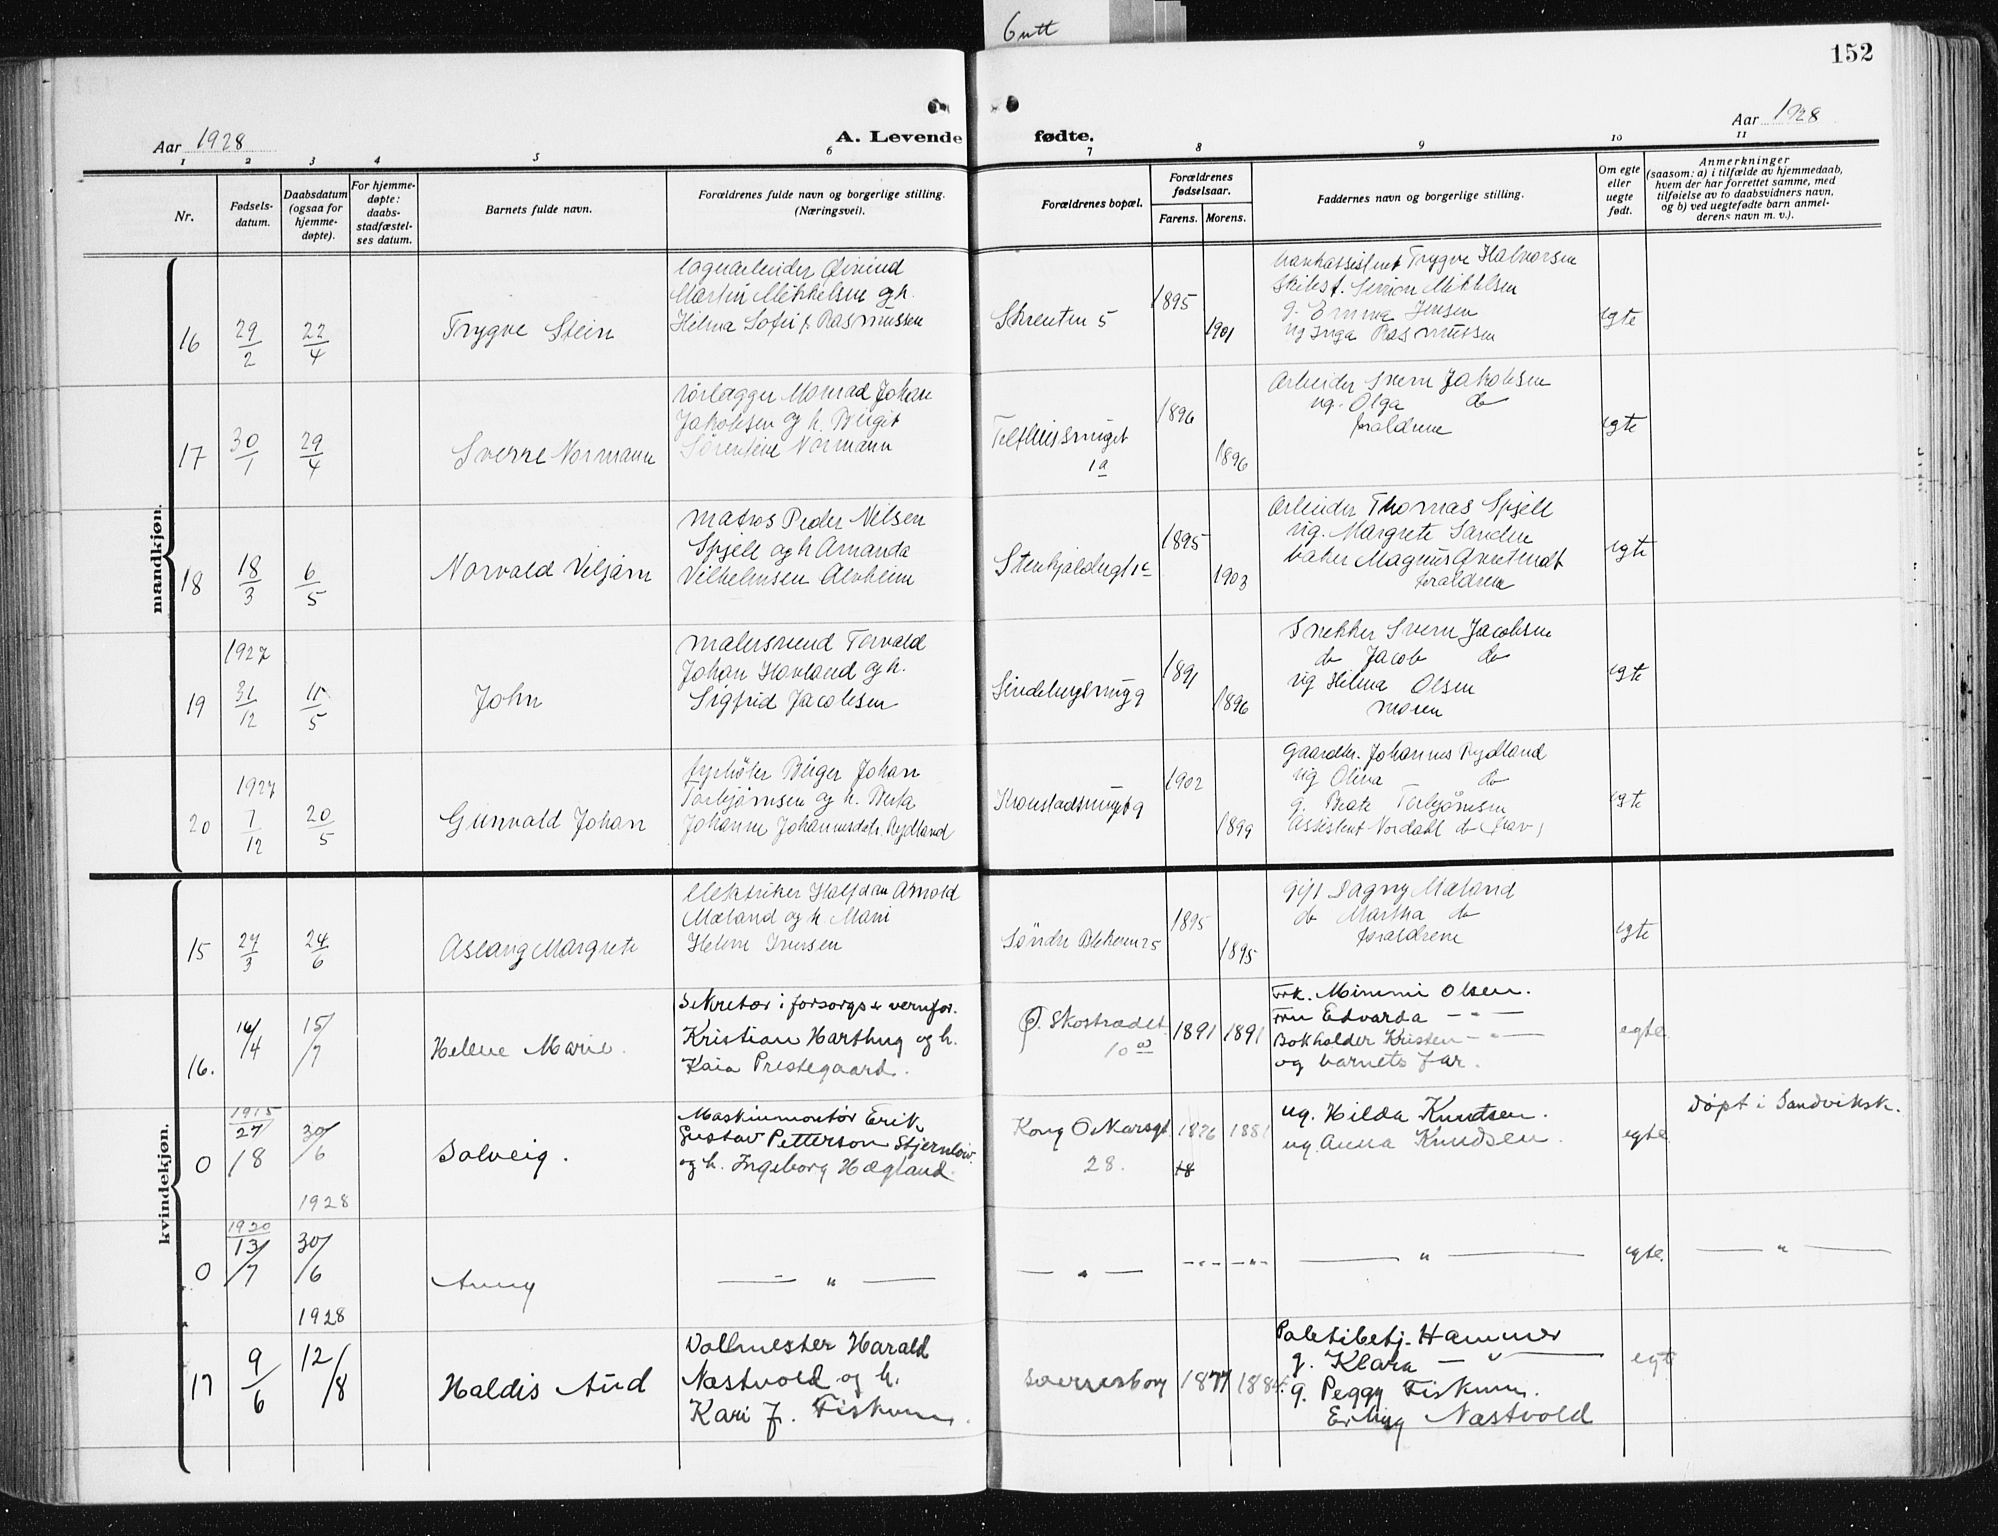 6 utt
152
Aar 1928
A. Levende fødte.
Aar 1928
1 2 3 4 5 6 7 8 9 10 11
Nr.
Fødsels-
datum.
Daabsdatum
(ogsaa for
hjemme-
døpte).
For hjemme-
døpte:
daabs-
stadfæstel-
ses datum.
Barnets fulde navn.
Forældrenes fulde navn og borgerlige stilling.
(Næringsvei).
Forældrenes bopæl.
Forældrenes
fødselsaar.
Farens. Morens.
Faddernes navn og borgerlige stilling.
Om egte
eller
uegte
født.
Anmerkninger
(saasom: a) i tilfælde av hjemmedaab,
hvem der har forrettet samme, med
tilføielse av to daabsvidners navn,
og b) ved uegtefødte barn anmel-
derens navn m. v.).
mandkjøn.
16
29/2
22/4
Trygve Stein
lagerarbeider Øivind
Martin Mikkelsen og h.
Helma Sofie f. Rasmussen
Skrenten 5
1895
1901
bankassistent Trygve Halvorsen
Skibst. Simon Mikkelsen
g. Emma Jensen
ug Inga Rasmussen
egte
17
30/1
29/4
Sverre Normann
rørlægger Monrad Johan
Jakobsen og h. Birgit
Sørentine Normann
Telthussmuget
1a
1896
1896
Arbeider Sverre Jakobsen
ug. Olga do
forældrene
egte
18
18/3
6/5
Norvald Viljam
matros Peder Nilsen
Spjell og h Amanda
Vilhelmsen Alvheim
1895
1903
Arbeider Thomas Spjell
ug. Margrete Sanden
baker Magnus
forældrene
egte
19
1927
31/12
11/5
John
malersvend Torvald
Johan Hovland og h.
Sigfrid Jacobsen
1891
1896
Snekker Sverre Jacobsen
do Jacob do
ug Helma Olsen
moren
egte
20
1927
7/12
20/5
Gunvald Johan
fyrbøter Birger Johan
Torbjørnsen og h. Berta
Johanne Johannesdatr. Rydland
Kronstadsmuget 9
1902
1899
gaardbr. Johannes Rydland
ug Oliva do
g. Beate Torbjørnsen
Assistent Nordahl do (fav)
egte
kvindekjøn.
15
27/3
24/6
Aslaug Margrete
Elektriker Halfdan Arnold
Mæland og h Marie
Helene Iversen
Søndre Blekeven 25
1895
1895
gift Dagny Mæland
do Martha do
forældrene
egte
16.
14/4
15/7
Helene Marie.
Sekretær i forsorgs & vernfor.
Kristian Harthug og h.
Kaia Prestegaard.
Ø. Skostrædet
10 a)
1891
1891
Frk. Mimmi Olsen.
Fru Edvarda — " —
Bokholder Kristen — " —
og barnets far.
egte.
0
1915
27/8
30/6
1928
Solveig.
Maskinmontør Erik
Gustav Petterson Stjernløv
og h. Ingeborg Hægland.
Kong Oskarsgt.
28.
1876
78
1881
ug. Hilda Knutsen.
ug. Anna Knudsen.
egte
Døpt i Sandviksk.
0
1920
13/7
30/6
1928
Anny
— " —
— " —
— " —
— " —
— " —
egte.
— " —
17
9/6
12/8
Haldis Aud
Vollmester Harald
Næstvold og h.
Kari J. Fiskum.
Sverresborg
1877
Politibetj. Hammer
g. Klara — " —
g. Peggy Fiskum.
Erling Næstvold
egt.